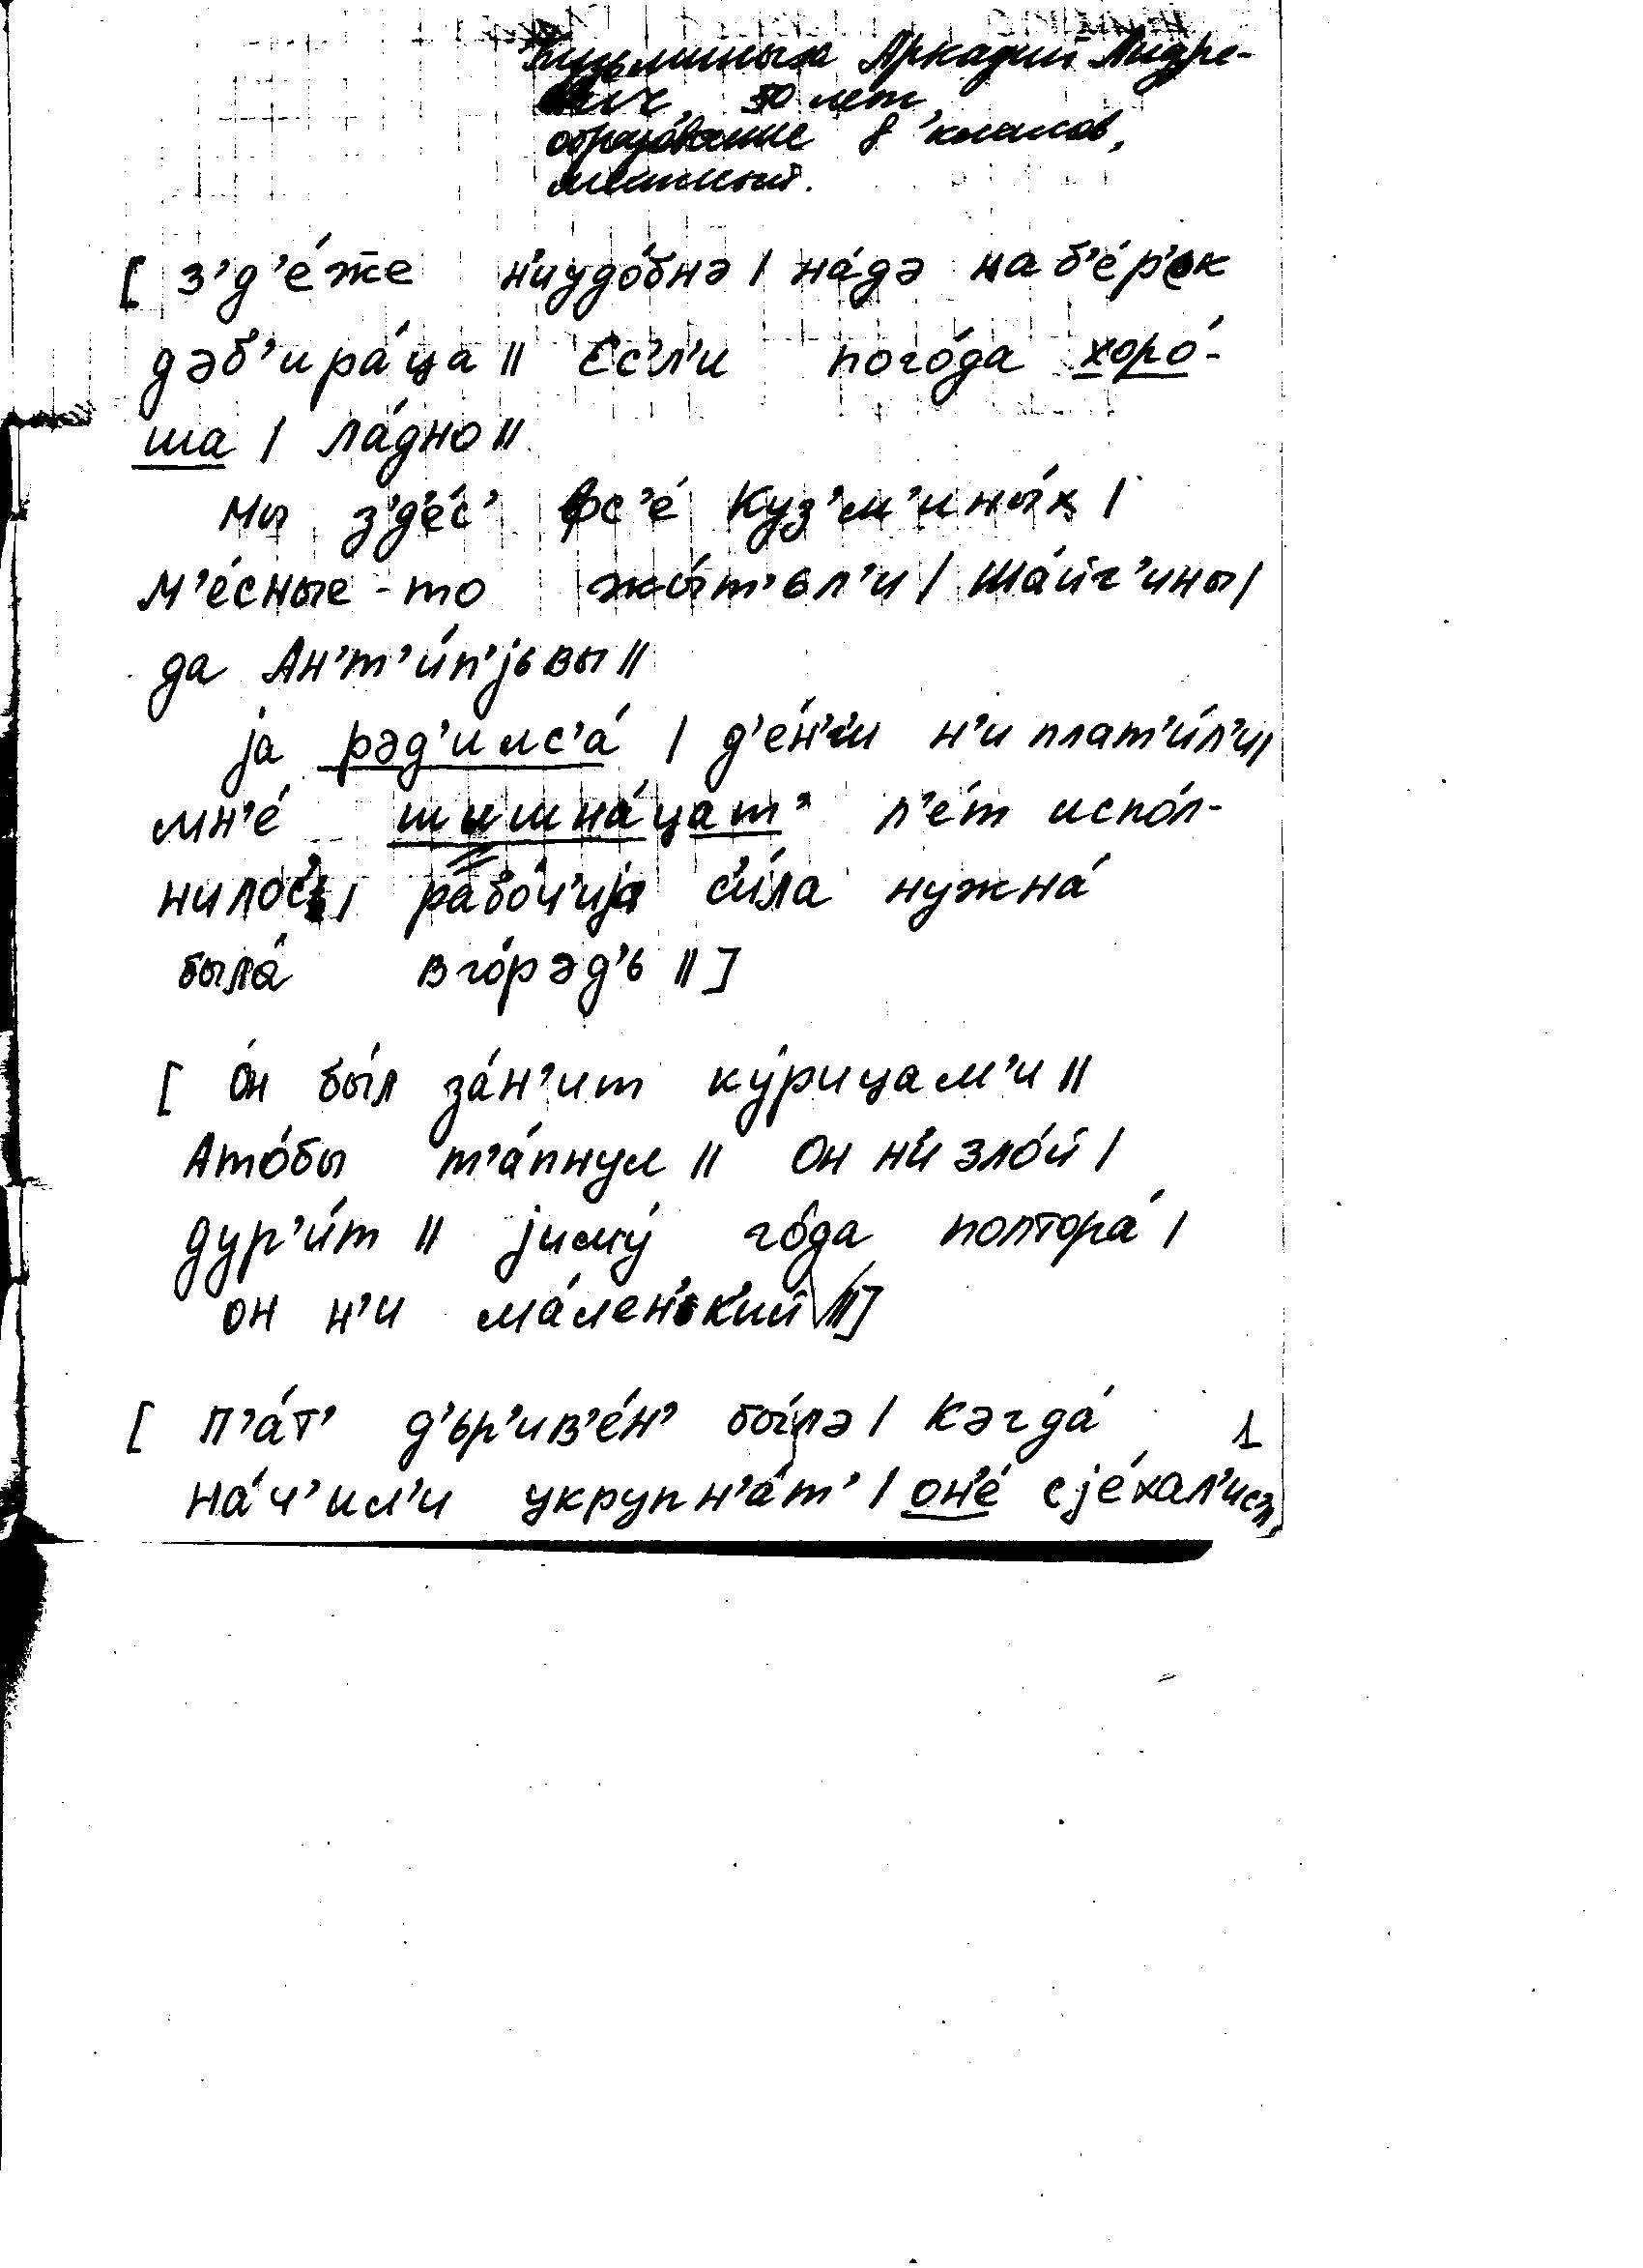 Кузьминых Аркадий Андре-
вич, 50 лет,
образование 8 классов,
местный.
[ з'д'е́же н'иудо́бнə / на́дə на б'е́р'ек
дəб'ира́ца // Е́с'л'и пого́да хоро́-
ша / ла́дно //
Мы з'д'е́с' фс'е́ Куз'м'ины́х /
м'е́сные-то жы́т'ьл'и / Ша́йг'ины /
да Ан'т'и́п'jьвы //
jа рəд'илс'а́ / д'е́н'г'и н'и плат'и́л'и /
мн'е́ шышна́цат' л'е́т испо́л-
нилос' / рабо́ч'иjа с'и́ла нужна́
была́ в го́рəд'ь // ]
[ О́н бы́л за́н'ит ку́рицам'и //
Ато́бы т'а́пнул // Он н'и зло́й /
дур'и́т // jиму́ го́да полтора́ /
он н'и ма́лен'к'ий // ]
[ П'а́т' д'ьр'ив'е́н' бы́лə / кəгда́
на́ч'ил'и укрупн'а́т' / он'е́ сjе́хал'ис'
1